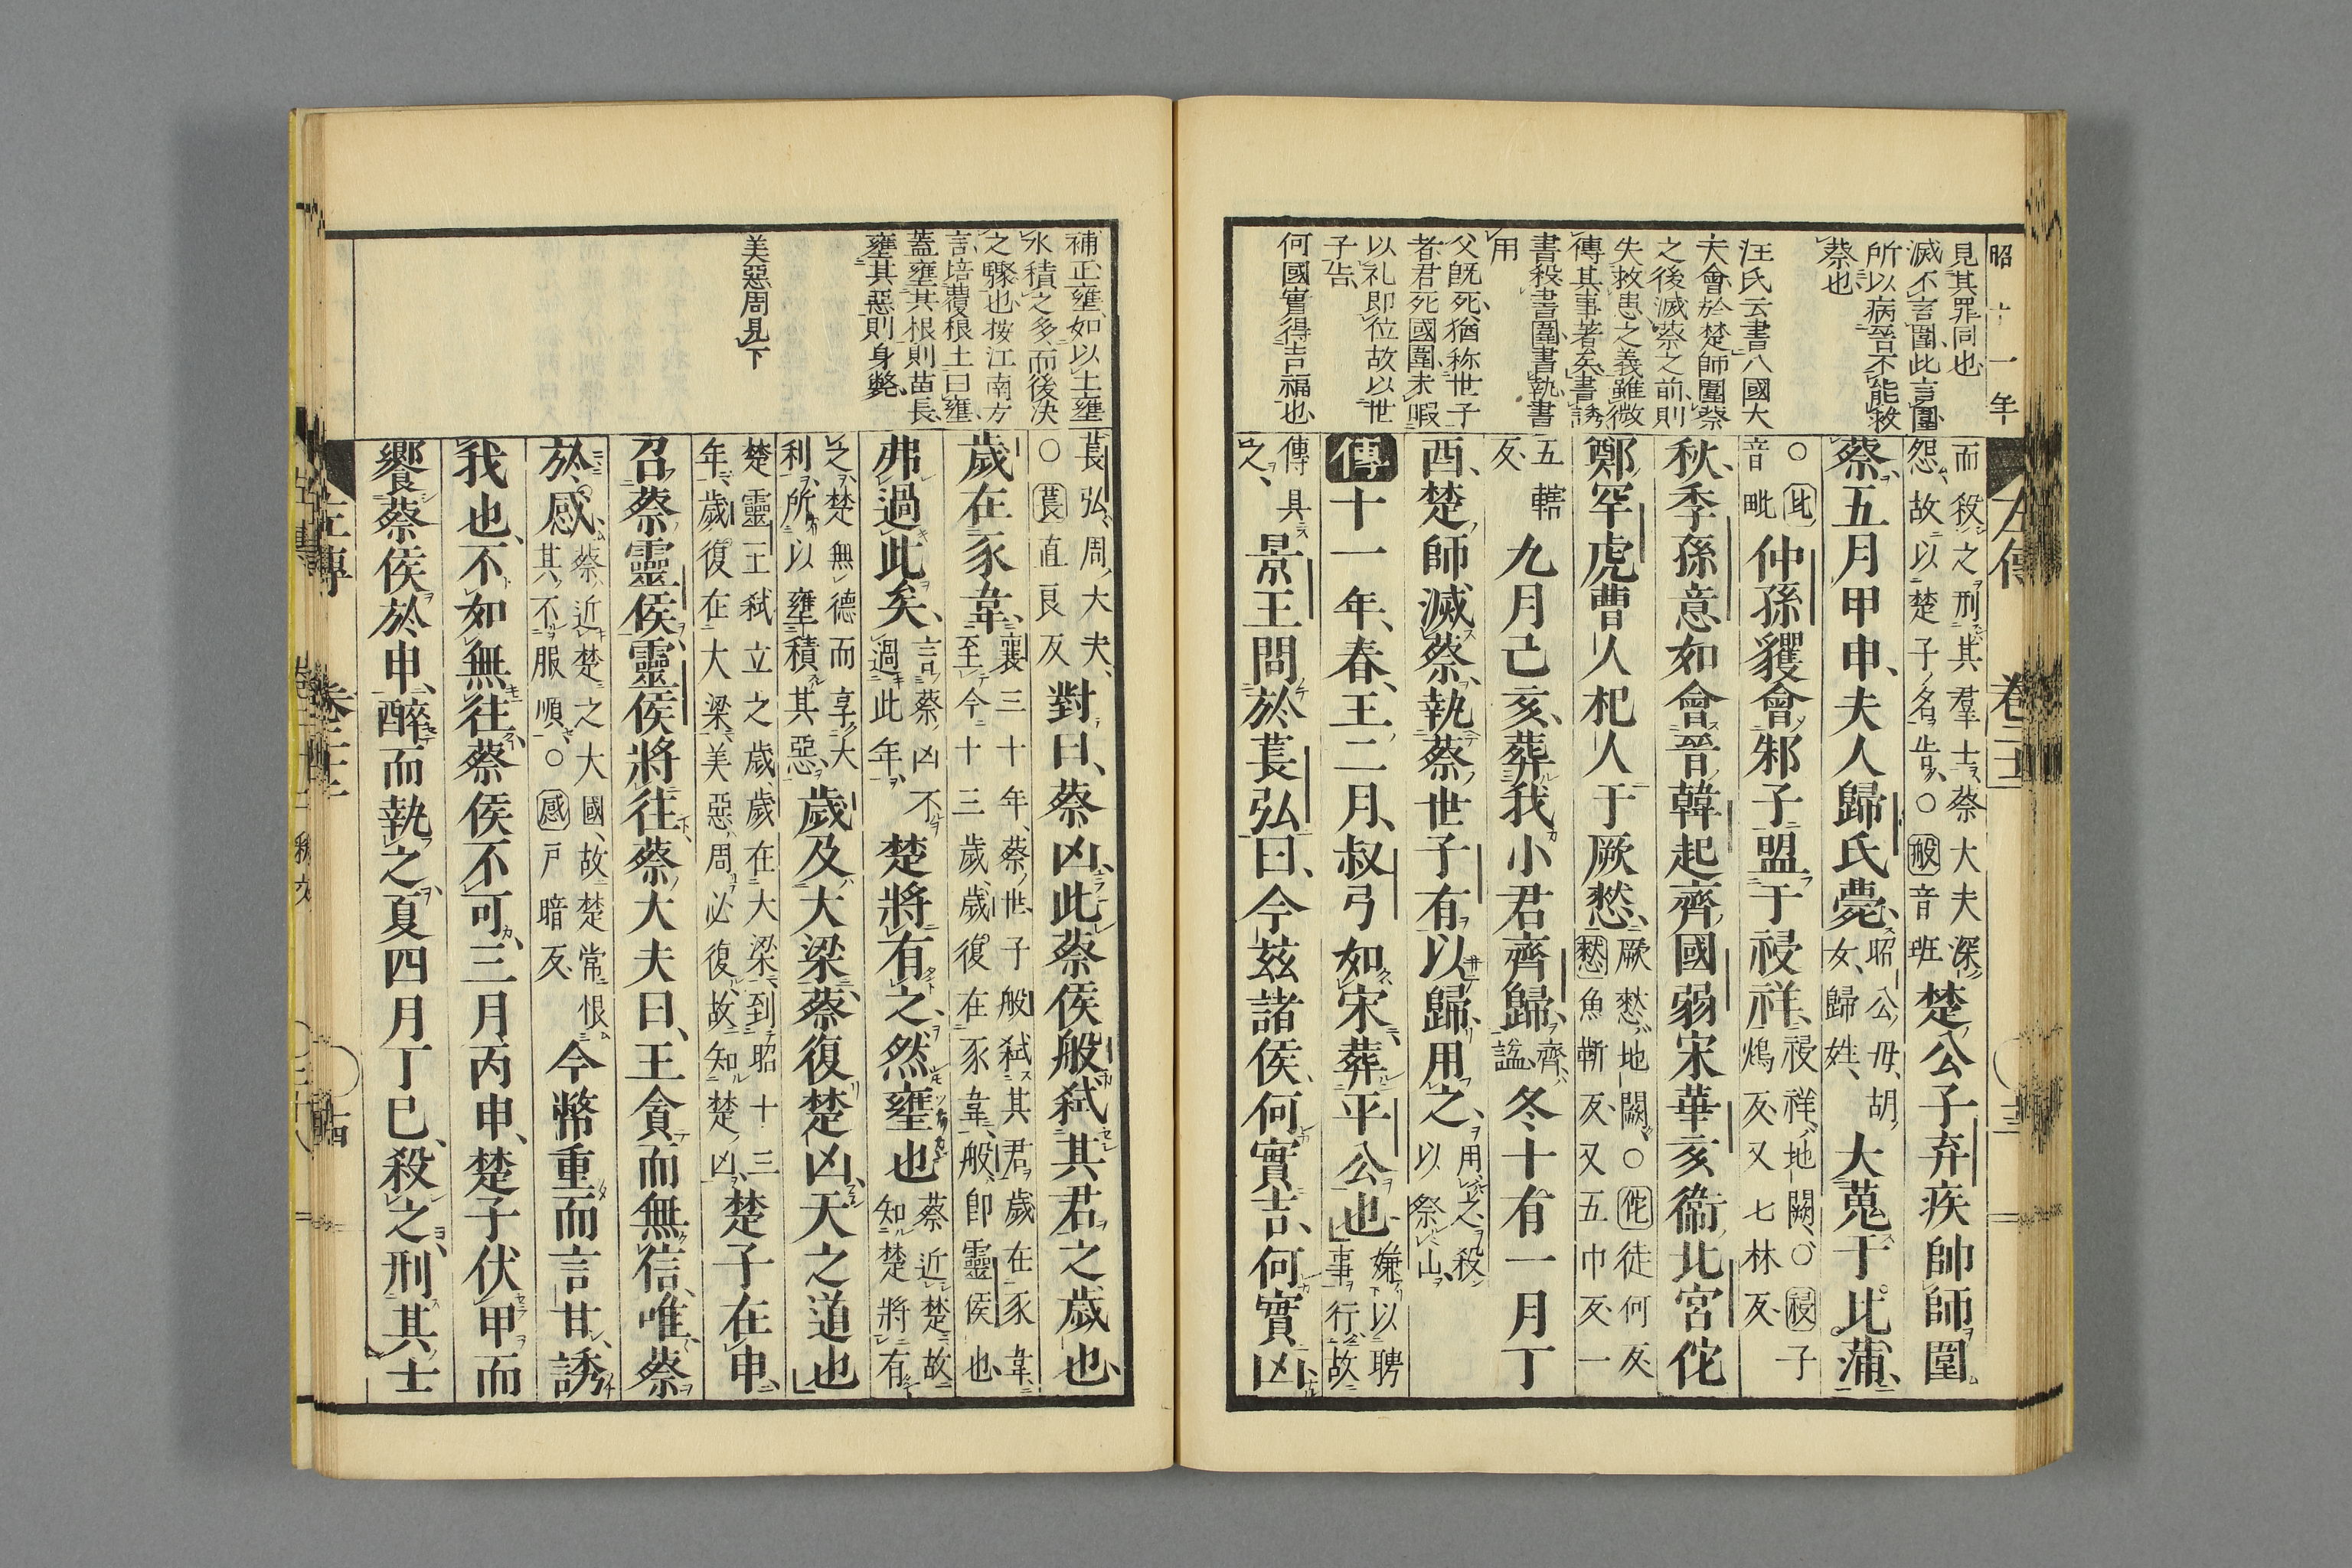 昭 十一年
見其罪同也
滅不言圍此言圍
所以病晉不能救
蔡也
汪氏云書八國大
夫會於楚師圍蔡
之後滅蔡之前則
失救患之義雖微
傳其事著矣書誘
書殺書圍書執書
用
父既死猶称世子
者君死國圍未暇
以礼即位故以世
子告
何國實得吉福也
而殺之刑其羣士蔡大夫深
怨故以楚子名告○般音班
楚公子弃疾帥師圍
蔡五月甲申夫人歸氏薨
昭公母胡
女歸姓
大蒐于比蒲
○比
音毗
仲孫貜會邾子盟于祲祥
祲祥地闕○祲子
鴆反又七林反
秋季孫意如會晉韓起齊國弱宋華亥衞北宮佗
鄭罕虎曹人杞人于厥憖
厥憖地闕○佗徒何反一
憖魚靳反又五巾反
五轄
反
九月己亥葬我小君齊歸
齊
諡
冬十有一月丁
酉楚師滅蔡執蔡世子有以歸用之
用之殺
以祭山
傳十一年春王二月叔弓如宋葬平公也
嫌以聘
事行故
傳具
之
景王問於萇弘曰今茲諸侯何實吉何實凶
補正壅如以土壅
水積之多而後決
之驟也按江南方
言培覆根土曰壅
蓋壅其根則苗長
壅其惡則身斃
美惡周見下
萇弘周大夫
○萇直良反
對曰蔡凶此蔡侯般弑其君之歲也
歲在豕韋
襄三十年蔡世子般弑其君歲在豕韋
至今十三歲歲復在豕韋般卽靈侯也
弗過此矣
言蔡凶不
過此年
楚將有之然壅也
蔡近楚故
知楚將有
之楚無德而享大
利所以壅積其惡
歲及大梁蔡復楚凶天之道也
楚靈王弑立之歲歲在大梁到昭十三
年歲復在大梁美惡周必復故知楚凶
楚子在申
召蔡靈侯靈侯將往蔡大夫曰王貪而無信唯蔡
於感
蔡近楚之大國故楚常恨
其不服順○感戸暗反
今幣重而言甘誘
我也不如無往蔡侯不可三月丙申楚子伏甲而
饗蔡侯於申醉而執之夏四月丁巳殺之刑其士
左傳